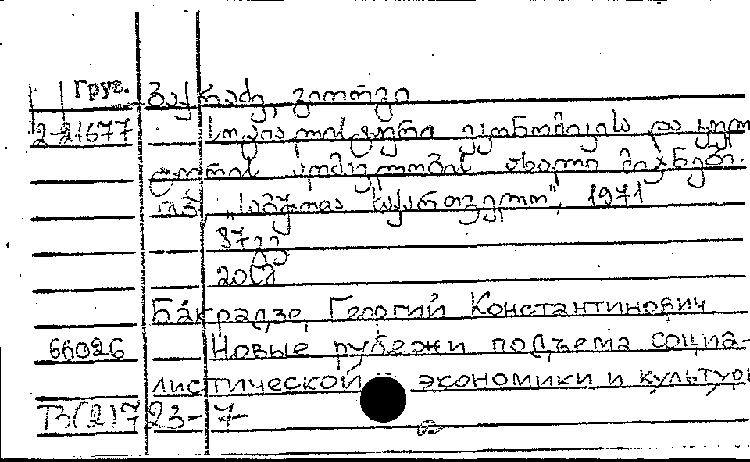 Груз. ბაქრაძე, გიორგი
2-21677 სოციალისტური ეკონომიკის და კულ
ტურის ახალი
თბ., „საბჭოთა საქართველო", 1971
87გვ
20სმ
Бакрадзе, Георгий Константинович
66026 Новые рубежи подъема социа-
листической экономики и культур
Т3(2)7 23-7-